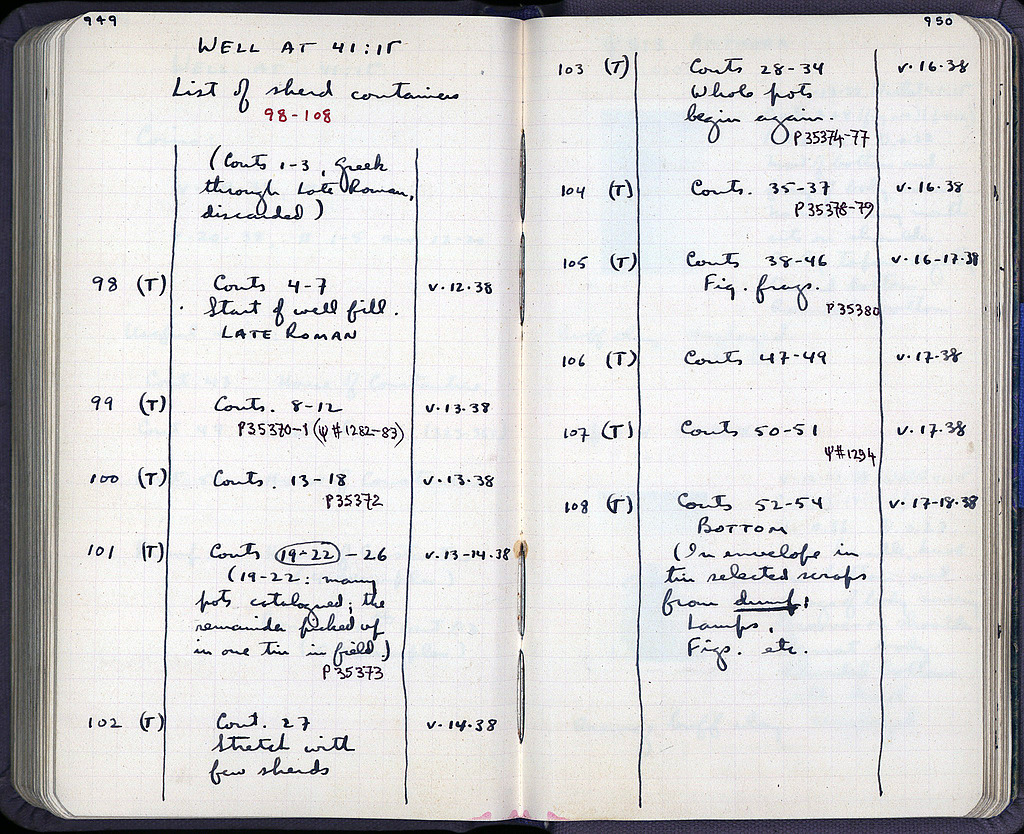 949
WELL AT 41:15
List of sherd containers
98-108
(Conts 1-3, Greek
through Late Roman,
discarded)
98 (T) Conts 4-7 V.12.38
Start of well fill.
LATE ROMAN
99 (T) Conts. 8-12 V.13.38
P35370-1 (Ψ#1282-83)
100 (T) Conts. 13-18 V.13.38
P35372
101 (T) Conts 19-22 - 26 V.13-14.38
(19-22: many
pots catalogued; the
remainder picked up
in one tin in field.)
P35373
102 (T) Cont. 27 V.14.38
Stretch with
few sherds
950
103 (T) Conts 28-34 V.16.38
Whole pots
begin again.
P35374-77
104 (T) Conts. 35-37 V.16.38
P35378-79
105 (T) Conts 38-46 V.16-17.38
Fig. frags.
P35380
106 (T) Conts 47-49 V.17.38
107 (T) Conts 50-51 V.17.38
Ψ#1294
108 (T) Conts 52-54 V.17-18.38
BOTTOM
(In envelope in
tin selected scraps
from dump:
Lamps,
Figs. etc.